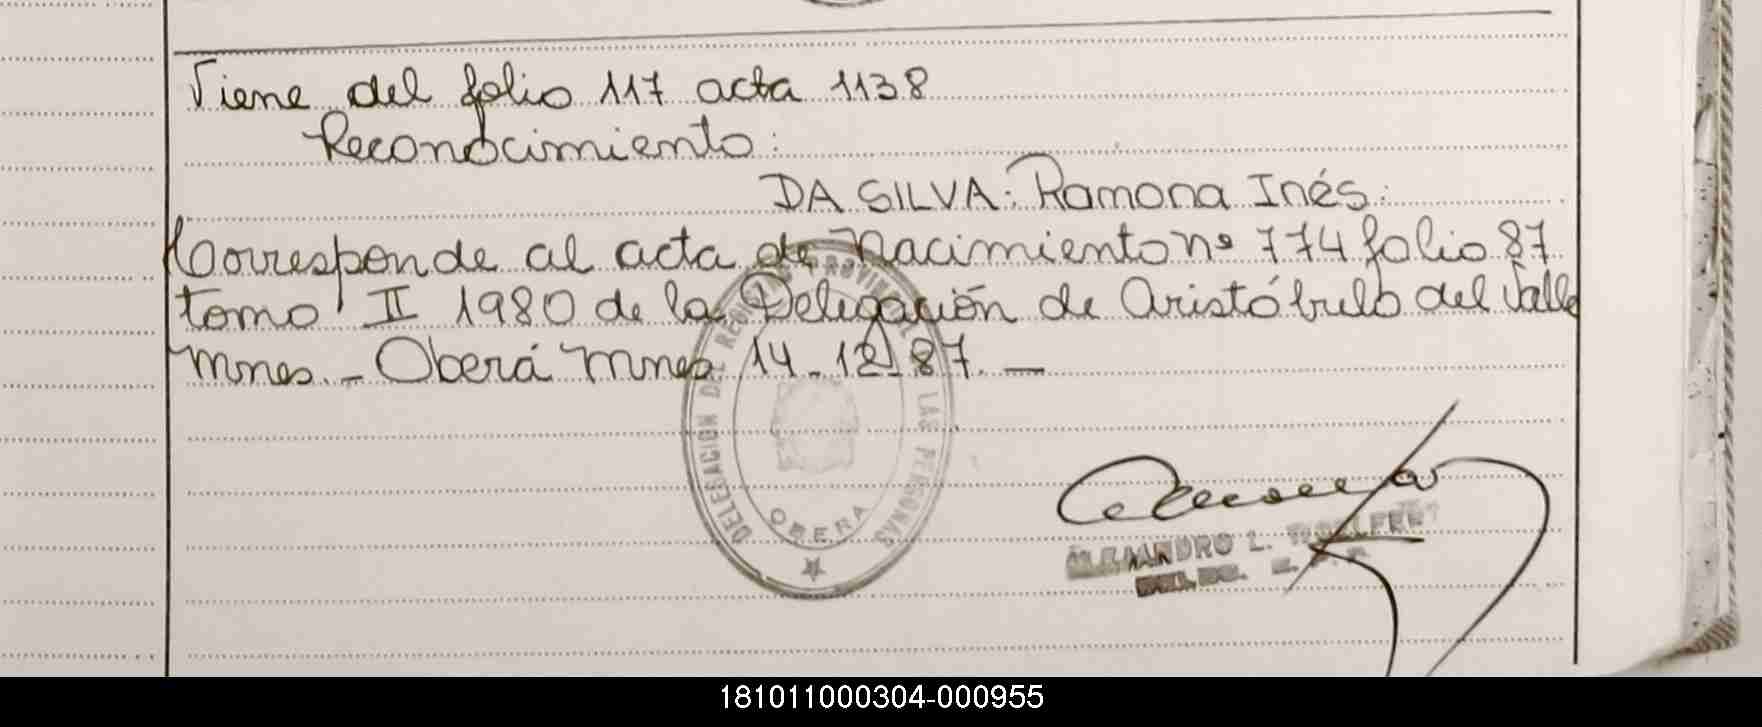 Viene del folio 117 acta 1138
Reconocimiento:
DA SILVA: Ramona Inés.
Corresponde al acta de Nacimiento nº 774 folio 87
tomo II 1980 de la Delegación de Aristóbulo del Valle
Mnes. - Oberá Mnes 14-12-87. —
DELEGACION DEL REGISTRO PROVINCIAL DE LAS PERSONAS
OBERA
ALEJANDRO L.
181011000304-000955